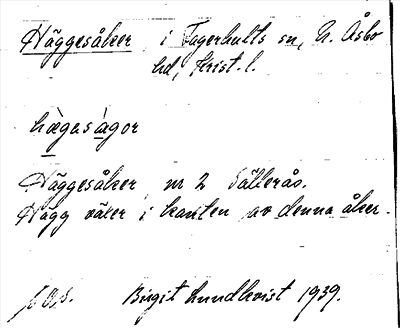 Häggesåker i Fagerhults sn, N. Åsbo
hd, Krist. l.
hægasågor
Häggesåker nr 2 Sällerås.
Hägg växer i kanten av denna åker.
Birgit Lundkvist 1939.